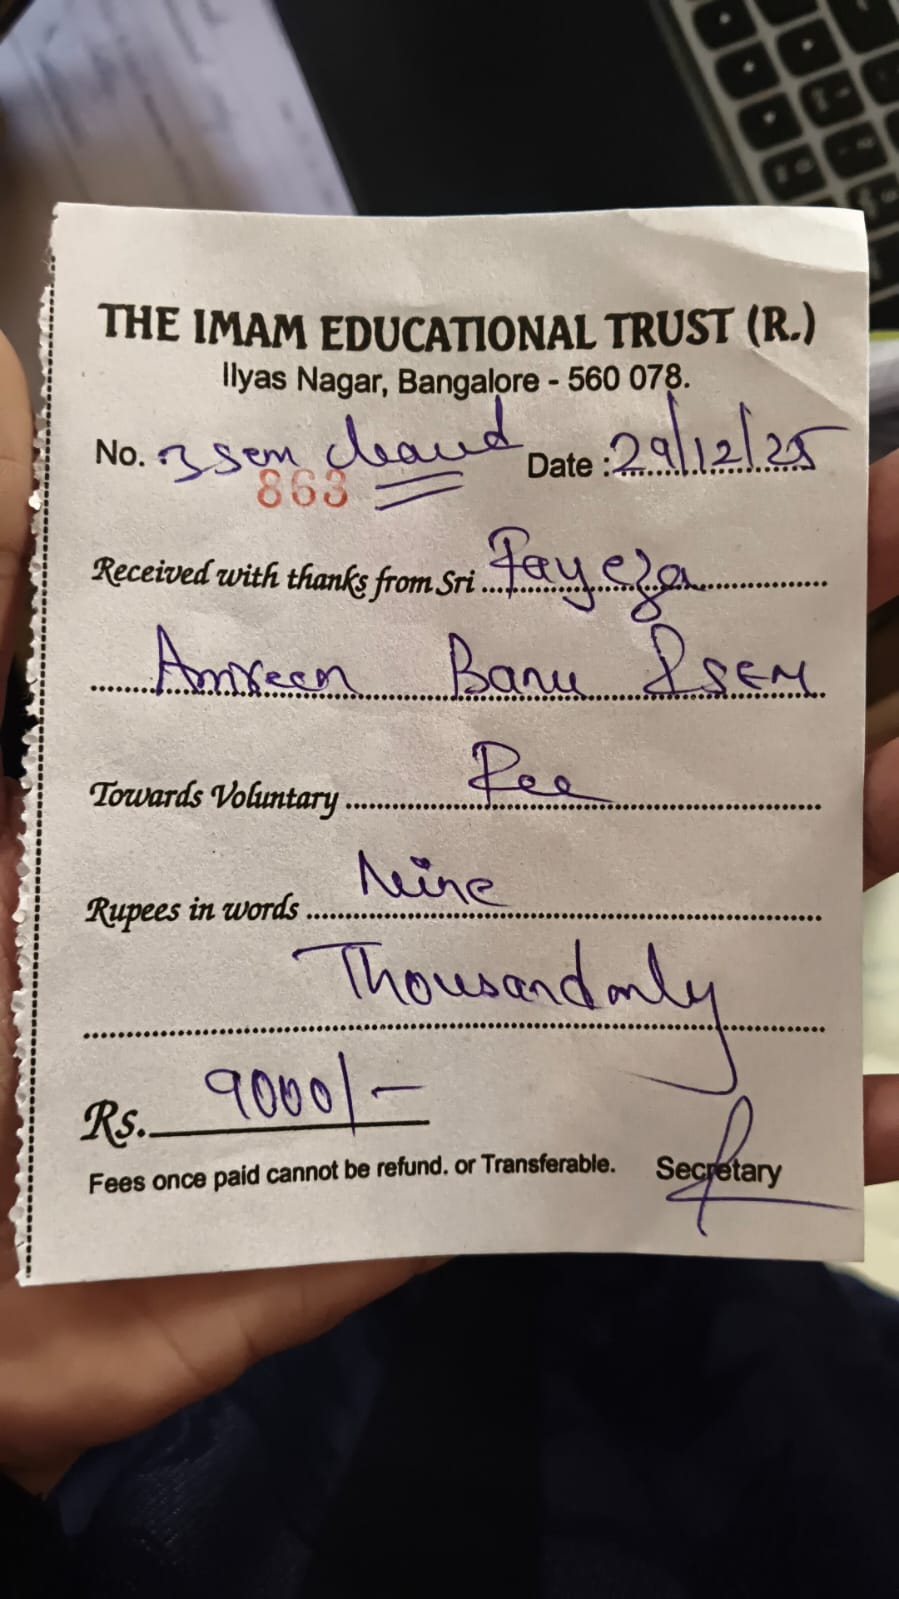 THE IMAM EDUCATIONAL TRUST (R.)
Ilyas Nagar, Bangalore - 560 078.
No. 3 sem Date : 29/12/25
863
Received with thanks from Sri Fayeza
Amreen Banu SEM
Towards Voluntary Fee
Rupees in words Nine
Thousand only
Rs. 9000/-
Fees once paid cannot be refund. or Transferable. Secretary